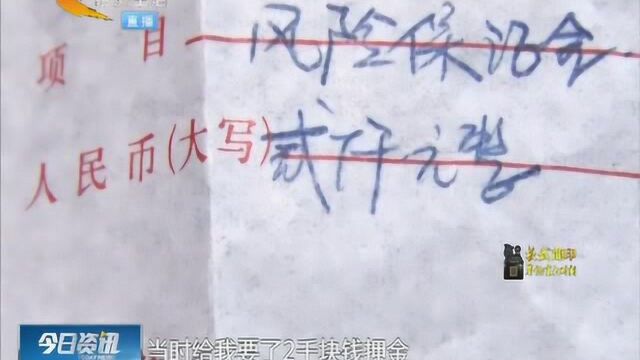 直播
项 目 风险保证金
人民币(大写) 贰仟元整
今日资讯
当时给我要了2千块钱押金